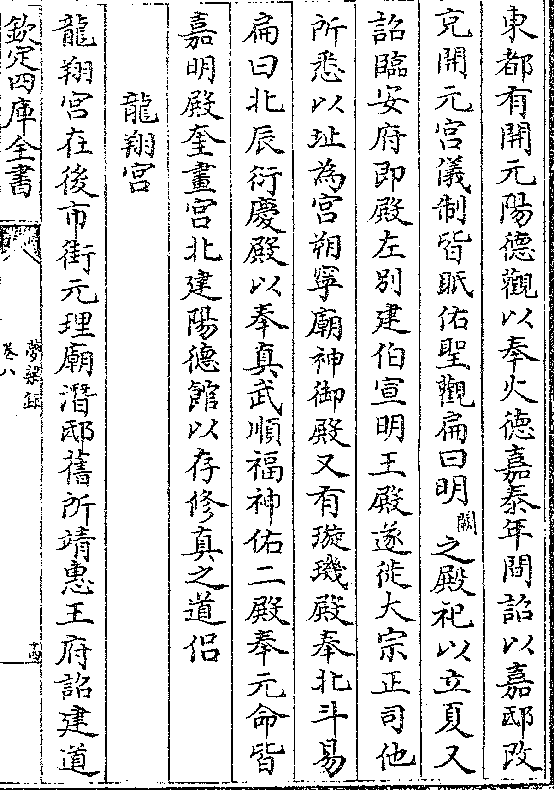 東都有開元陽德觀以奉火德嘉泰年間詔以嘉邸改
充開元宮儀制皆眂佑聖觀扁曰明闕之殿祀以立夏又
詔臨安府即殿左別建伯宣明王殿遂徙大宗正司他
所悉以址為宮朔寧廟神御殿又有璇璣殿奉北斗易
扁曰北辰衍慶殿以奉真武順福神佑二殿奉元命皆
嘉明殿奎畫宮北建陽德館以存修真之道侶
龍翔宮
龍翔宮在後市街元理廟潛邸舊所靖惠王府詔建道
欽定四庫全書
夢粱錄
卷八
十四